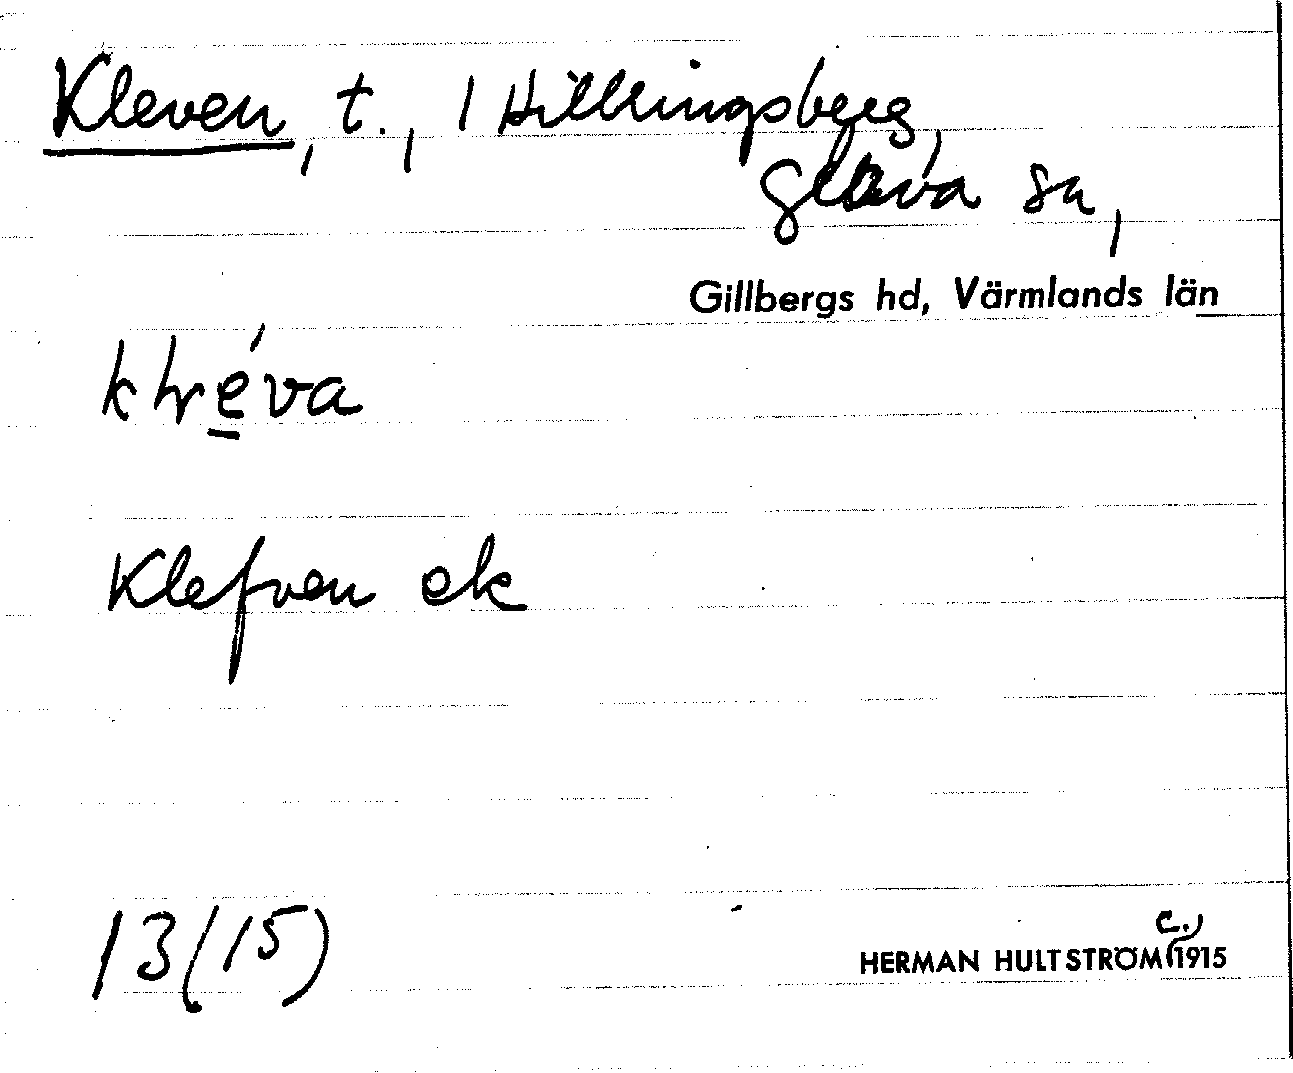 Kleven, t., 1 Hillringsberg,
Glava sn,
Gillbergs hd, Värmlands län
Klefven ek
13(15)
HERMAN HULTSTRÖM c., 1915